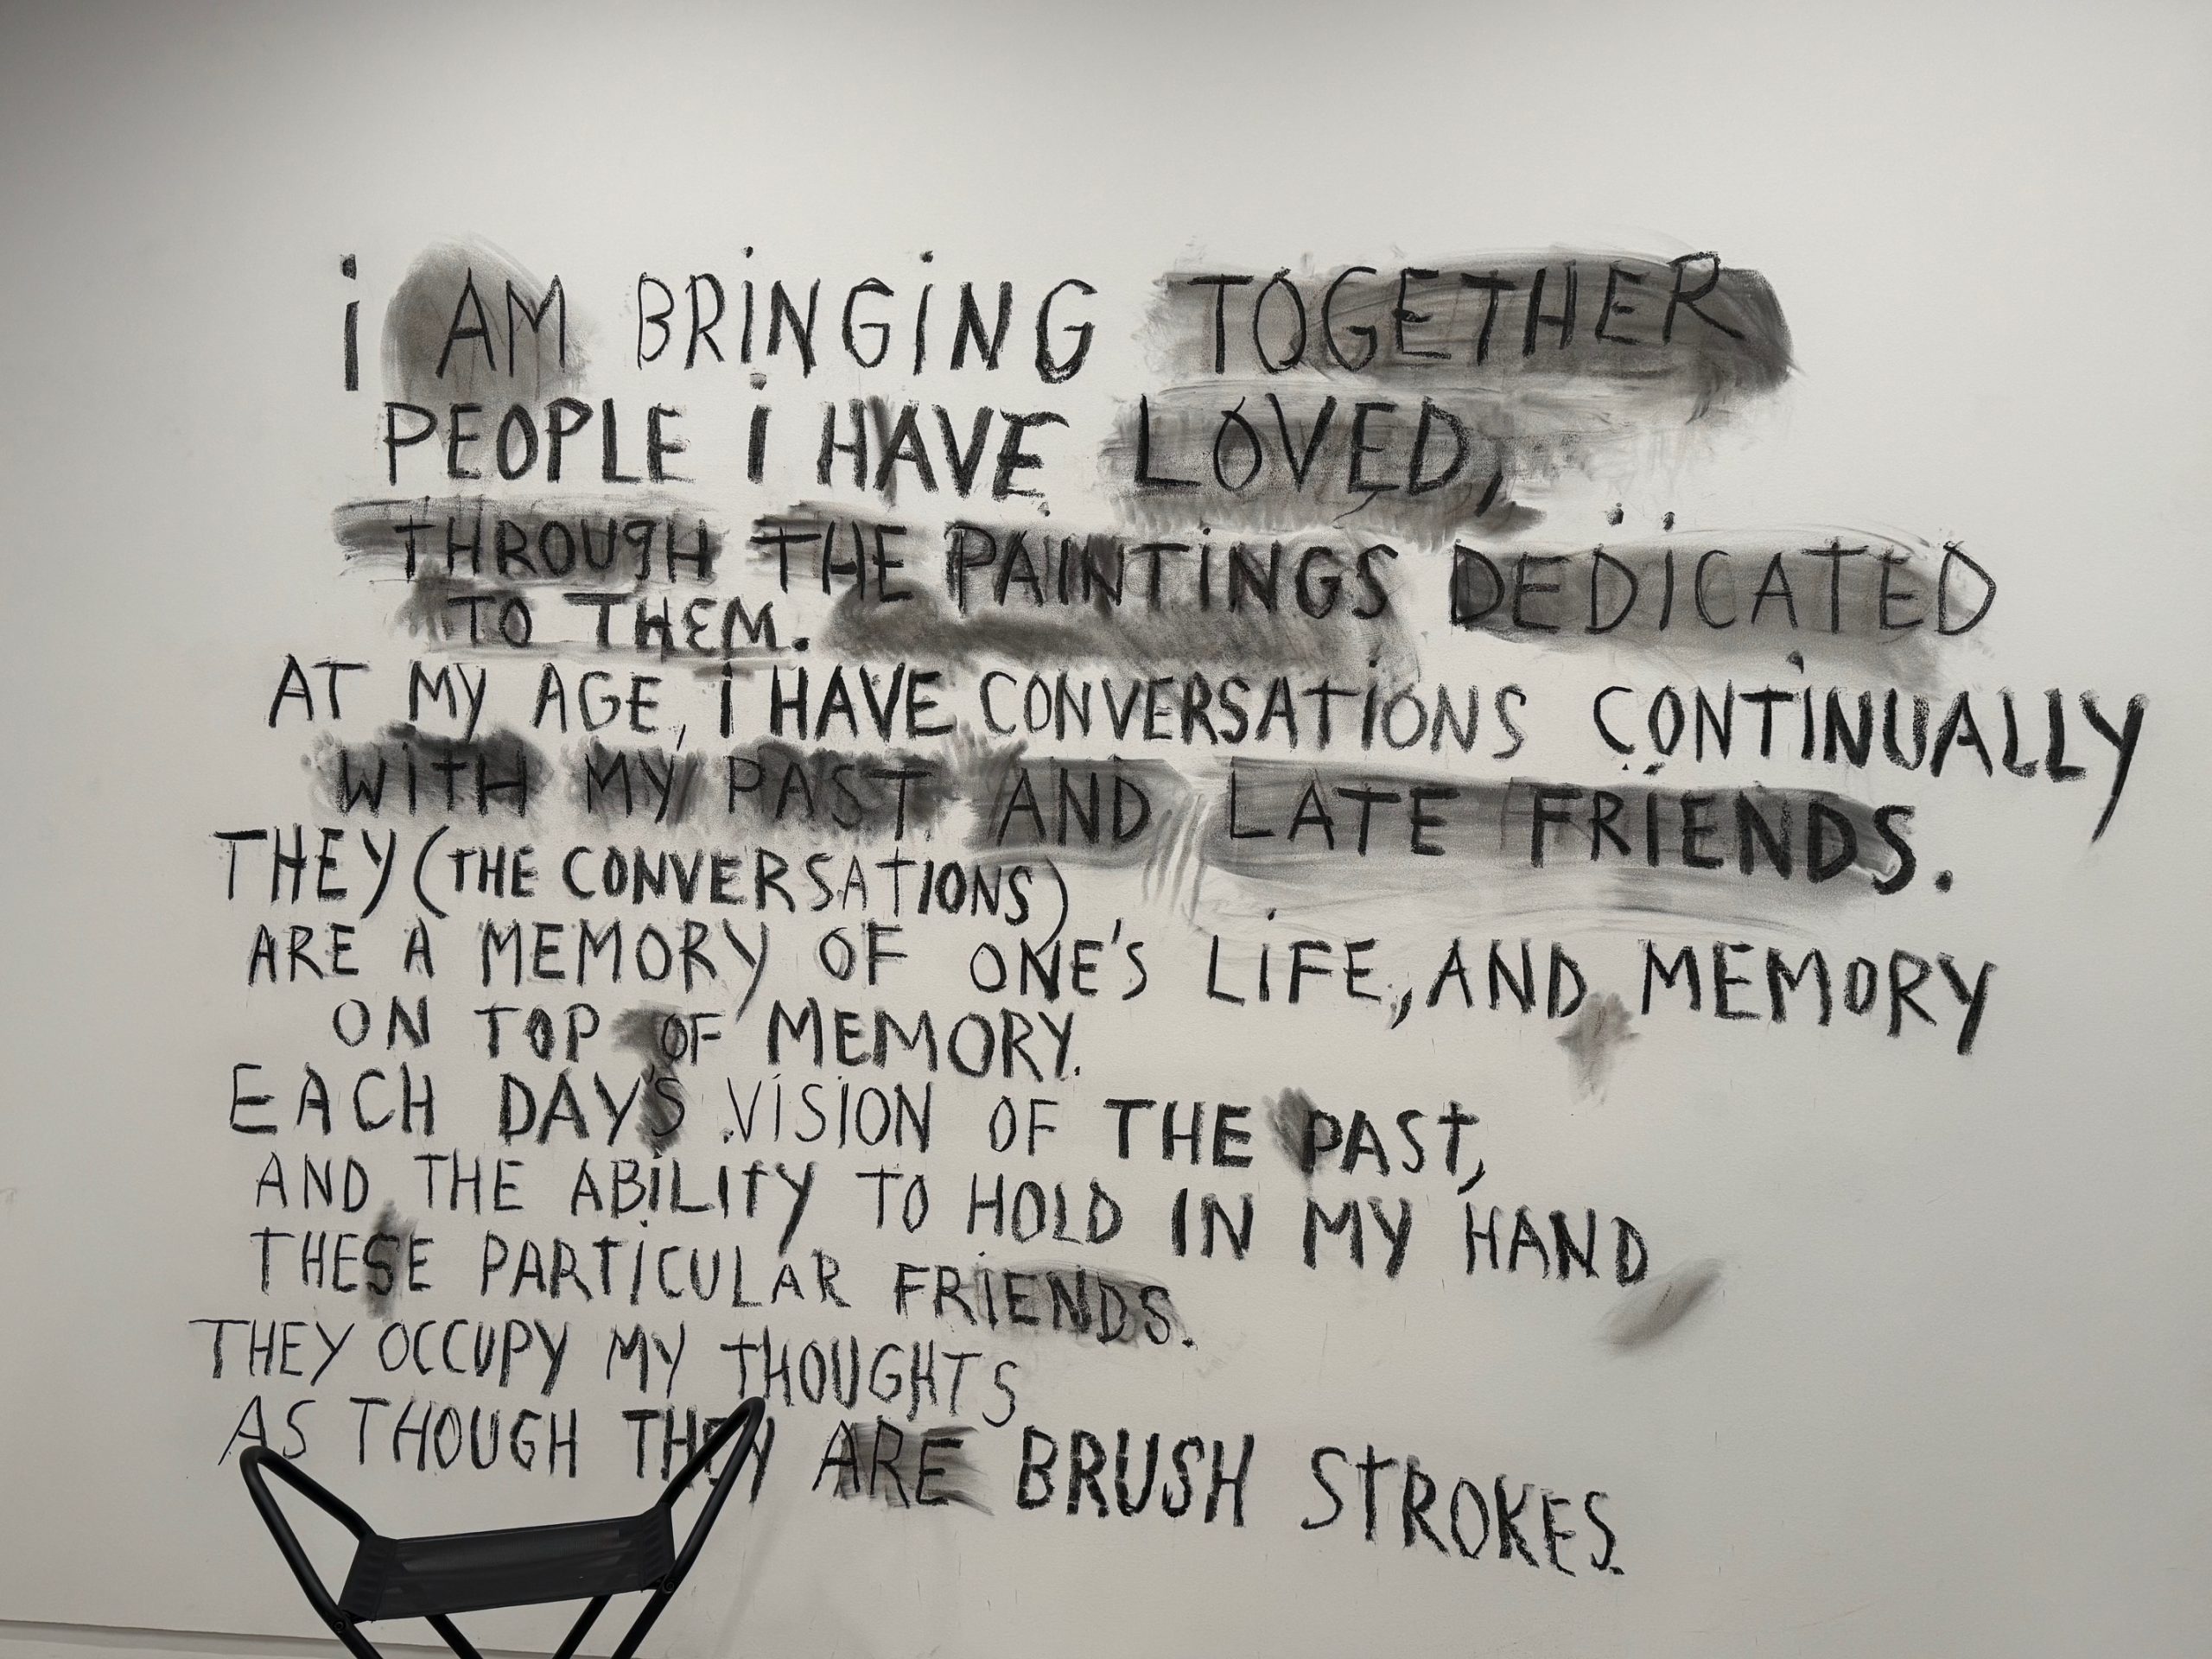 i AM BRiNGiNG TOGETHER
PEOPLE i HAVE LOVED,
THROUGH THE PAiNTiNGS DEDiCATED
TO THEM.
AT MY AGE, i HAVE CONVERSATiONS CONTiNUALLY
WiTH MY PAST AND LATE FRiENDS.
THEY (THE CONVERSATIONS)
ARE A MEMORY OF ONE'S LiFE, AND MEMORY
ON TOP OF MEMORY.
EACH DAY'S ViSiON OF THE PAST,
AND THE ABiLITY TO HOLD IN MY HAND
THESE PARTiCULAR FRiENDS.
THEY OCCUPY MY THOUGHTS
AS THOUGH THEY ARE BRUSH STROKES.